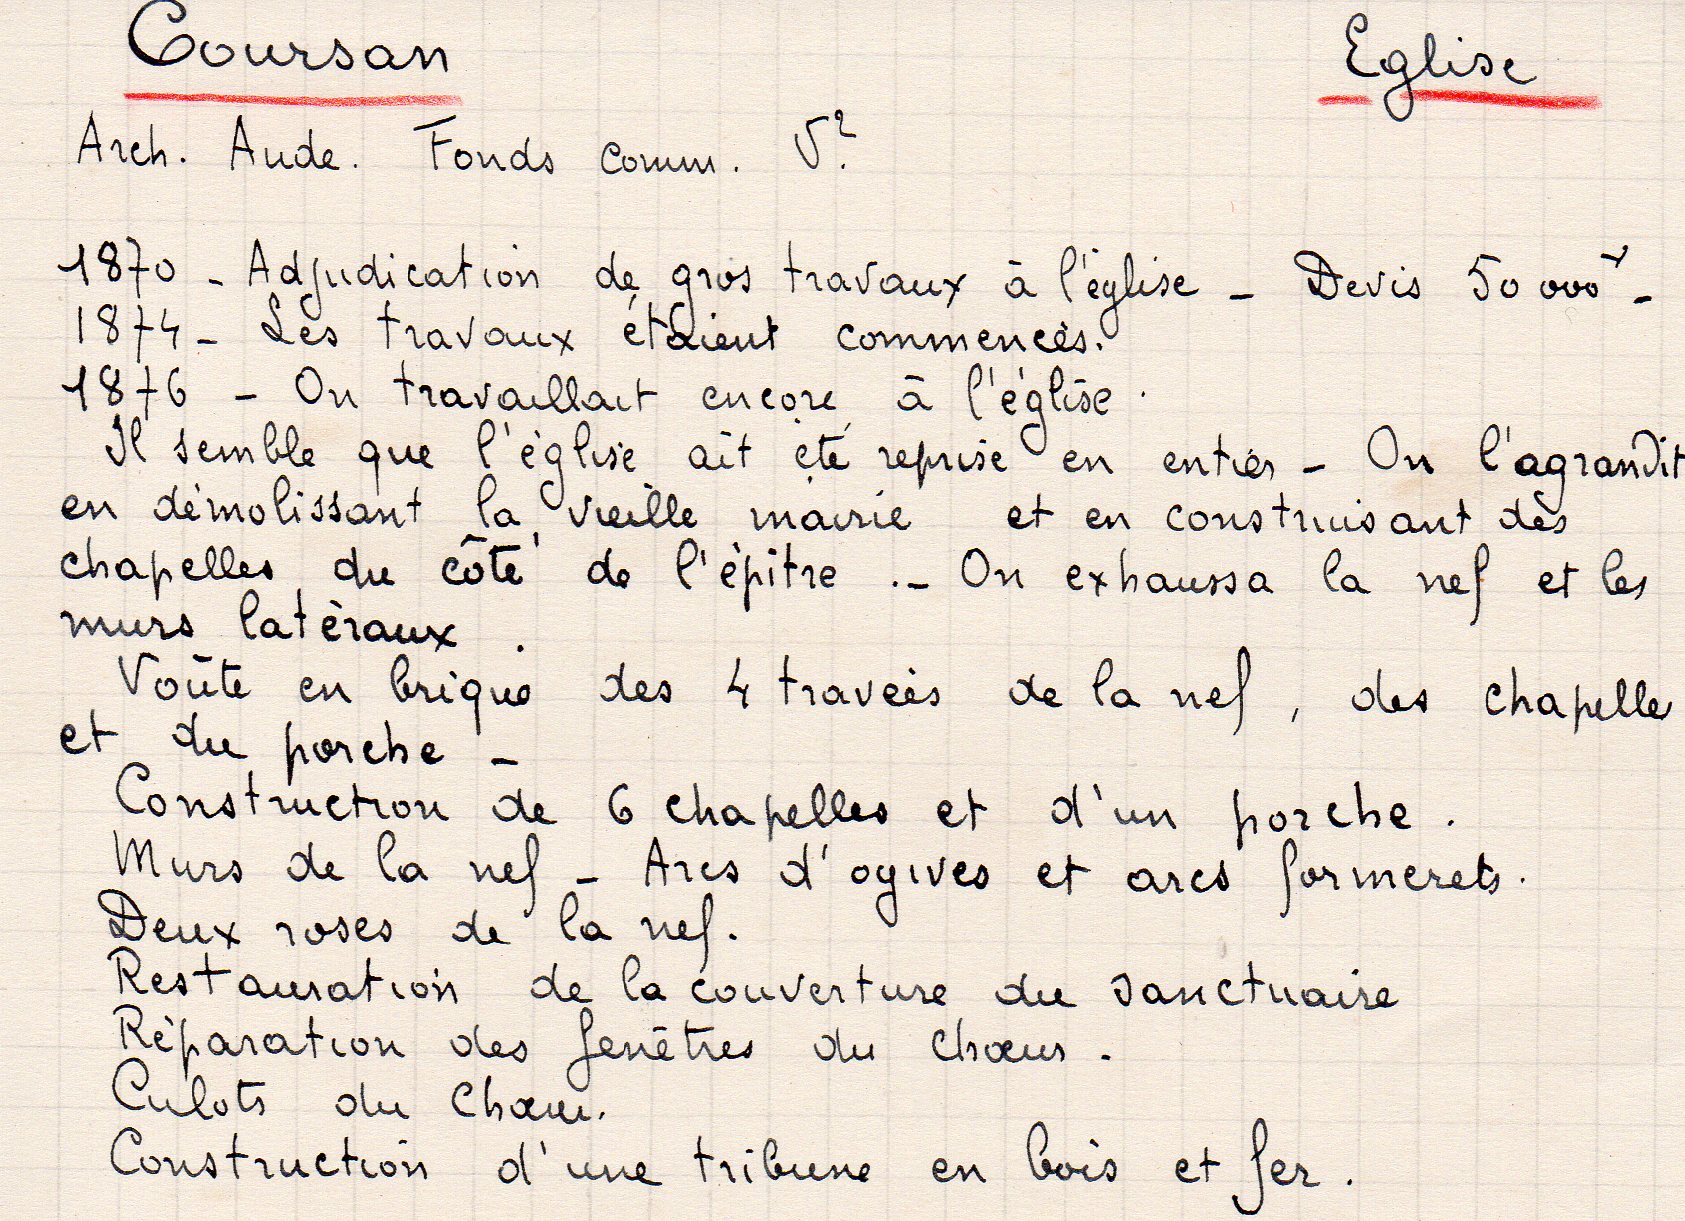 Coursan Eglise
Arch. Aude. Fonds comm. V².
1870 - Adjudication de gros travaux à l'église - Devis 50 000 -
1874 - Les travaux étaient commencés.
1876 - On travaillait encore à l'église.
Il semble que l'église ait été reprise en entier - On l'agrandit
en démolissant la vieille mairie et en construisant des
chapelles du côté de l'épitre. - On exhaussa la nef et les
murs latéraux.
Voûte en brique des 4 travées de la nef, des chapelles
et du porche -
Construction de 6 chapelles et d'un porche.
Murs de la nef - Arcs d'ogives et arcs formerets.
Deux roses de la nef.
Restauration de la couverture du sanctuaire
Réparation des fenêtres du chœur.
Culots du chœur.
Construction d'une tribune en bois et fer.